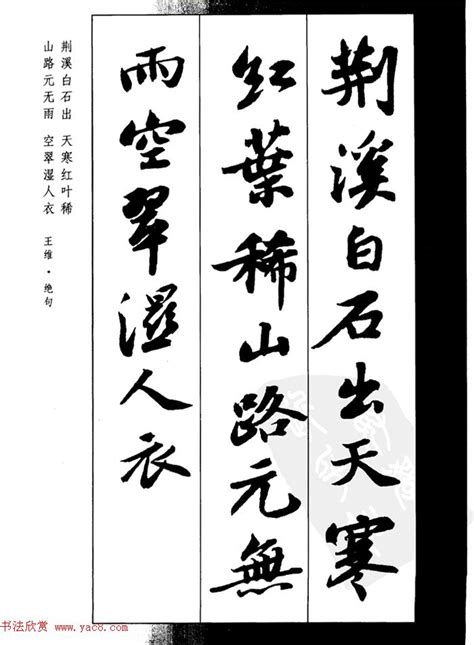 荆溪白石出天寒
红葉稀山路元無
雨空翠濕人衣
荆溪白石出 天寒红叶稀
山路元无雨 空翠湿人衣
王维·绝句
书法欣赏 www.yac8.com